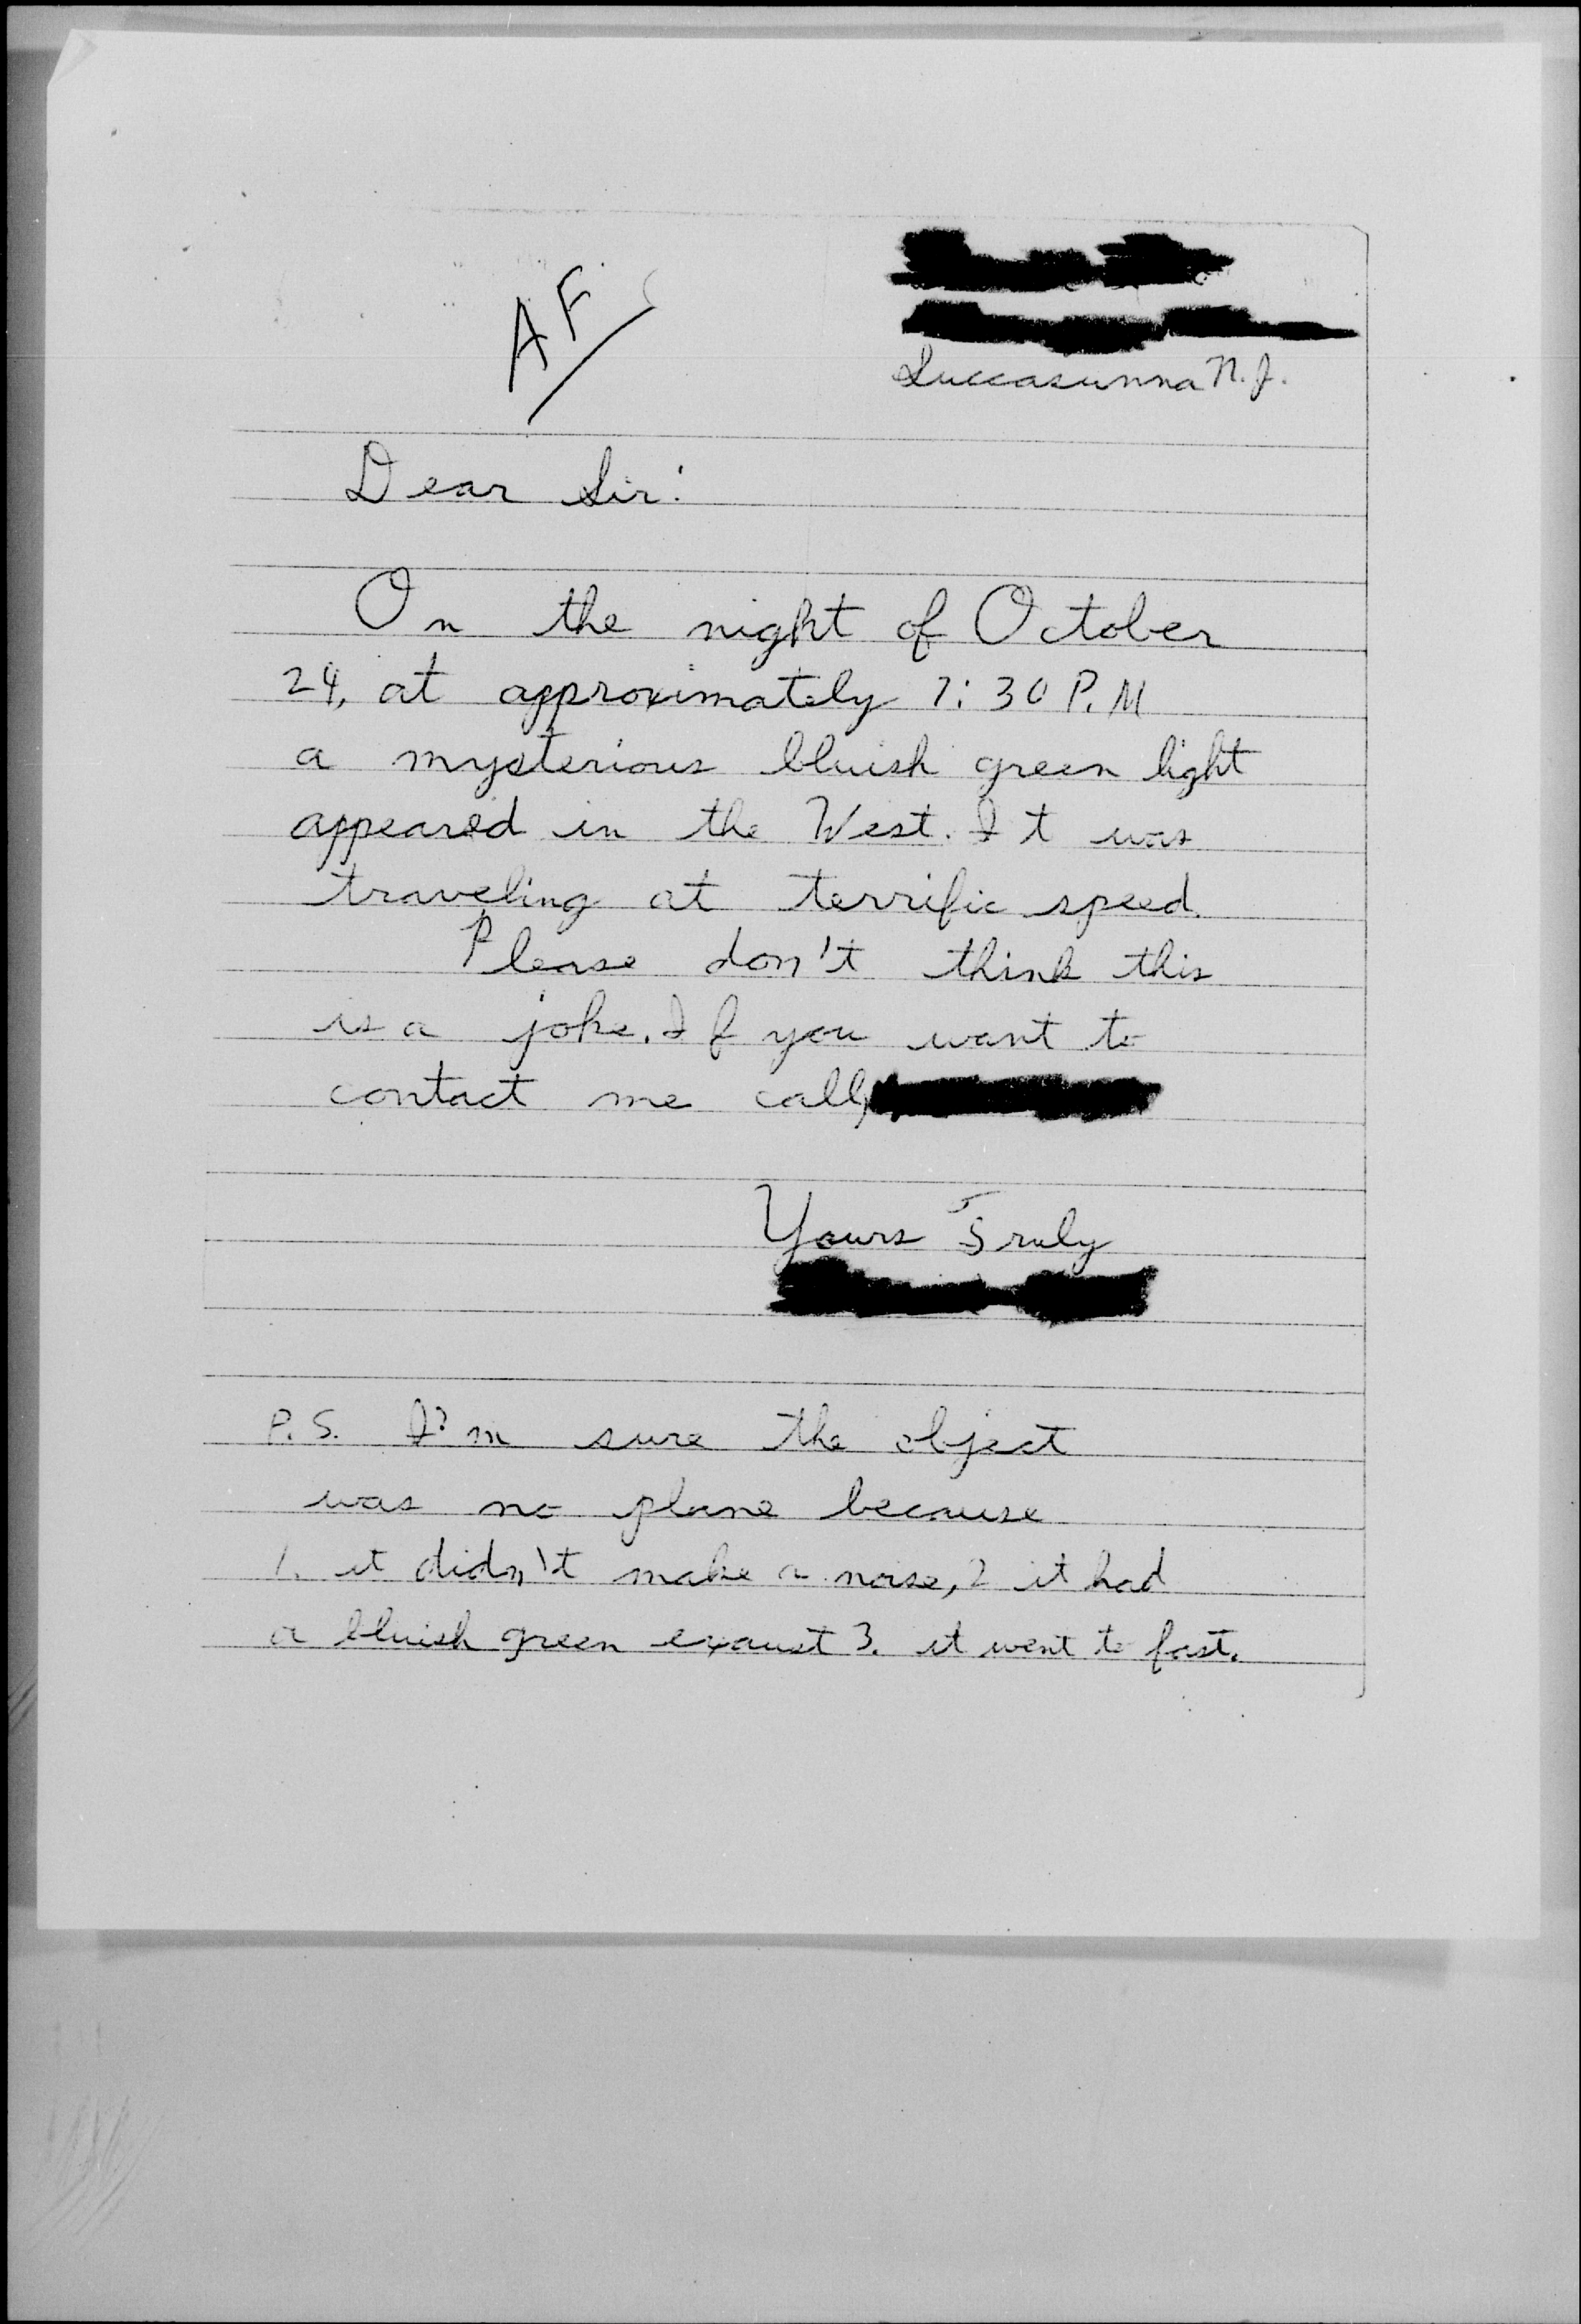 AF
Succasunna N.J.
Dear Sir:
On the night of October
24, at approximately 7:30 P.M
a mysterious bluish green light
appeared in the West. It was
traveling at terrific speed.
Please don't think this
is a joke. If you want to
contact me call
Yours Truly
P.S. I'm sure the object
was no plane because
1. it didn't make a noise, 2 it had
a bluish green exaust 3. it went to fast.